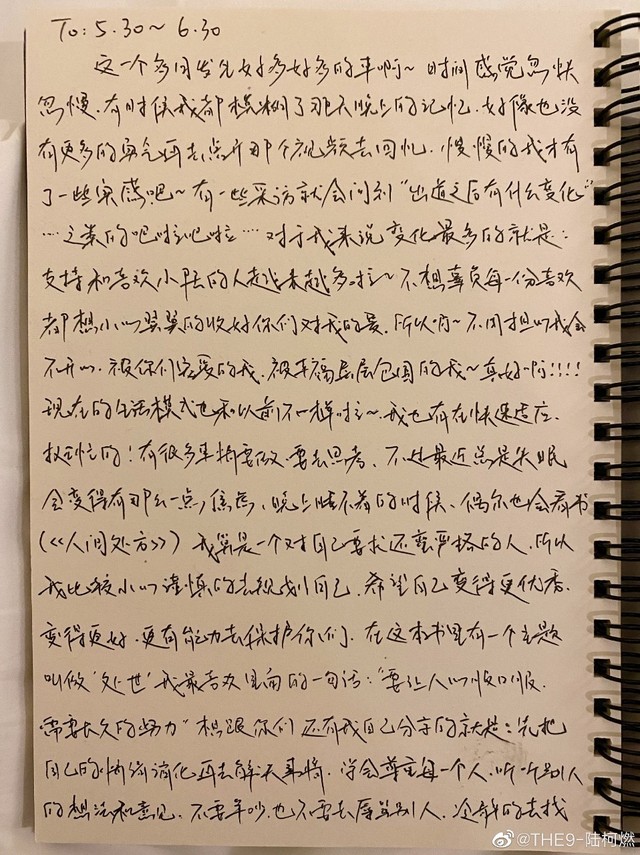 To: 5.30~6.30
这一个多月发生好多好多的事啊~ 时间感觉忽快
忽慢.有时候我都模糊了那天晚上的记忆.好像也没
有更多的勇气再去点开那个视频去回忆.慢慢的我才有
了一些实感吧~有一些采访就会问到“出道之后有什么变化”
…之类的吧啦吧啦…对于我来说变化最多的就是:
支持和喜欢小陆的人越来越多啦~不想辜负每一份喜欢
都想小心翼翼的收好你们对我的爱.所以啊~不用担心我会
不开心.被你们宠爱的我.被幸福层层包围的我~真好啊!!!!
现在的生活模式也和以前不一样啦~我也有在快速适应.
挺忙的!有很多事情要做.要去思考.不过最近总是失眠
会变得有那么一点点焦虑.晚上睡不着的时候、偶尔也会看书
(《人间处方》)我算是一个对自己要求还蛮严格的人.所以
我比较小心谨慎的去规划自己.希望自己变得更优秀.
变得更好.更有能力去保护你们.在这本书里有一个主题
叫做‘处世’我最喜欢里面的一句话:“要让人心服口服.
需要长久的努力”想跟你们还有我自己分享的就是:先把
自己的情绪消化再去解决事情.学会尊重每一个人.听一听别人
的想法和意见.不要争吵.也不要去辱骂别人.冷静的去找
@THE9-陆柯燃